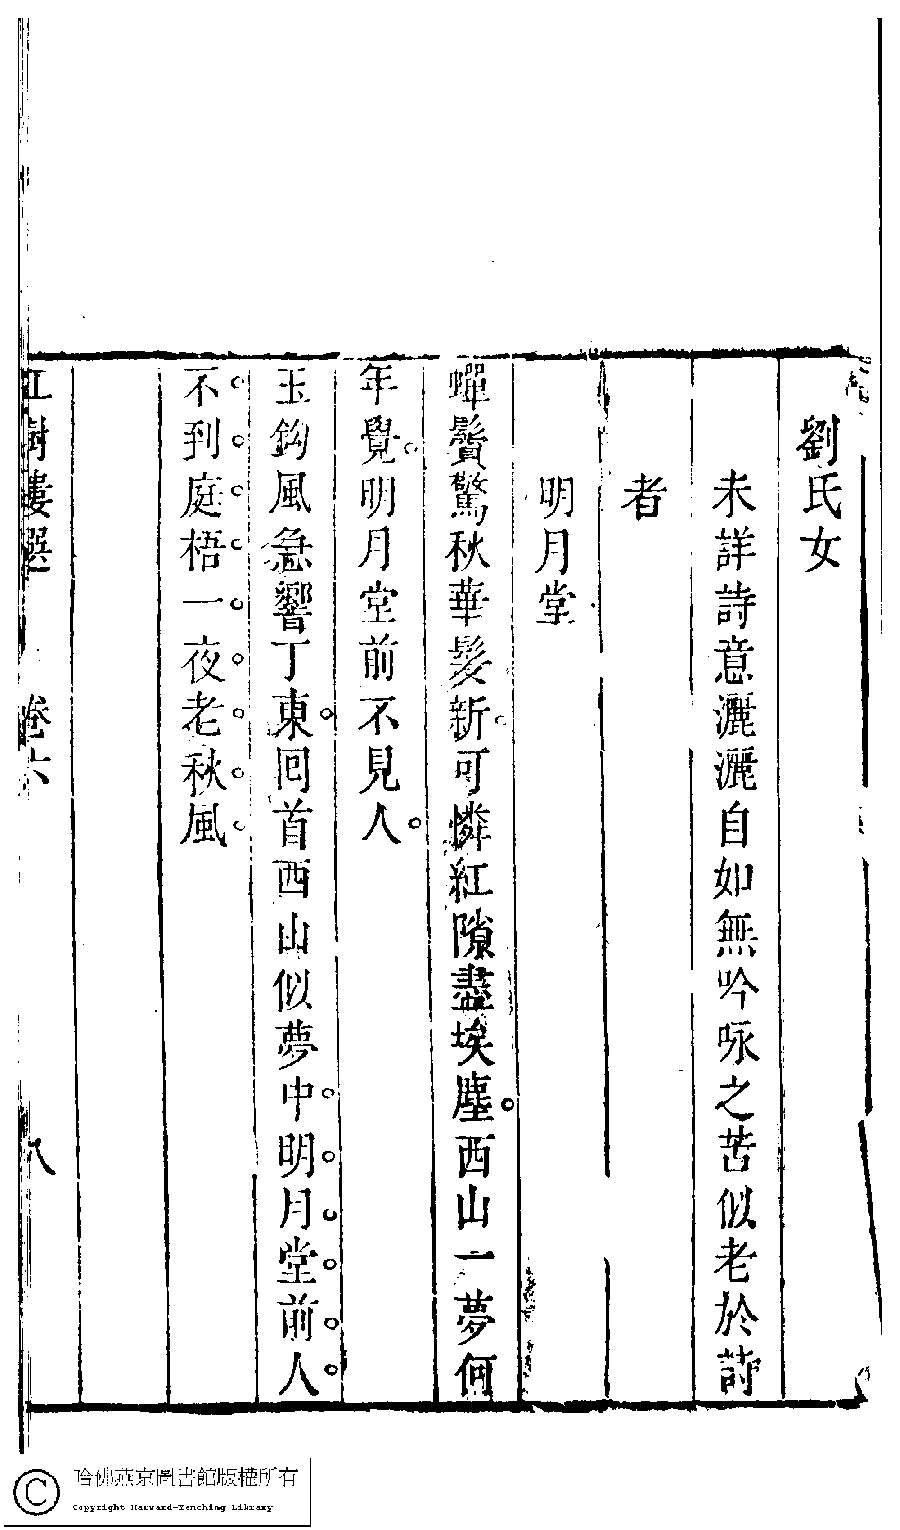 劉氏女
未詳詩意灑灑自如無吟咏之苦似老於詩
者
明月堂
蟬鬢驚秋華髮新可憐紅隙盡埃塵西山一夢何
年覺明月堂前不見人
玉鈎風急響丁東回首西山似夢中明月堂前人
不到庭梧一夜老秋風
紅樹樓選 卷六 八
哈佛燕京圖書館版權所有
Copyright Harvard-Yenching Library